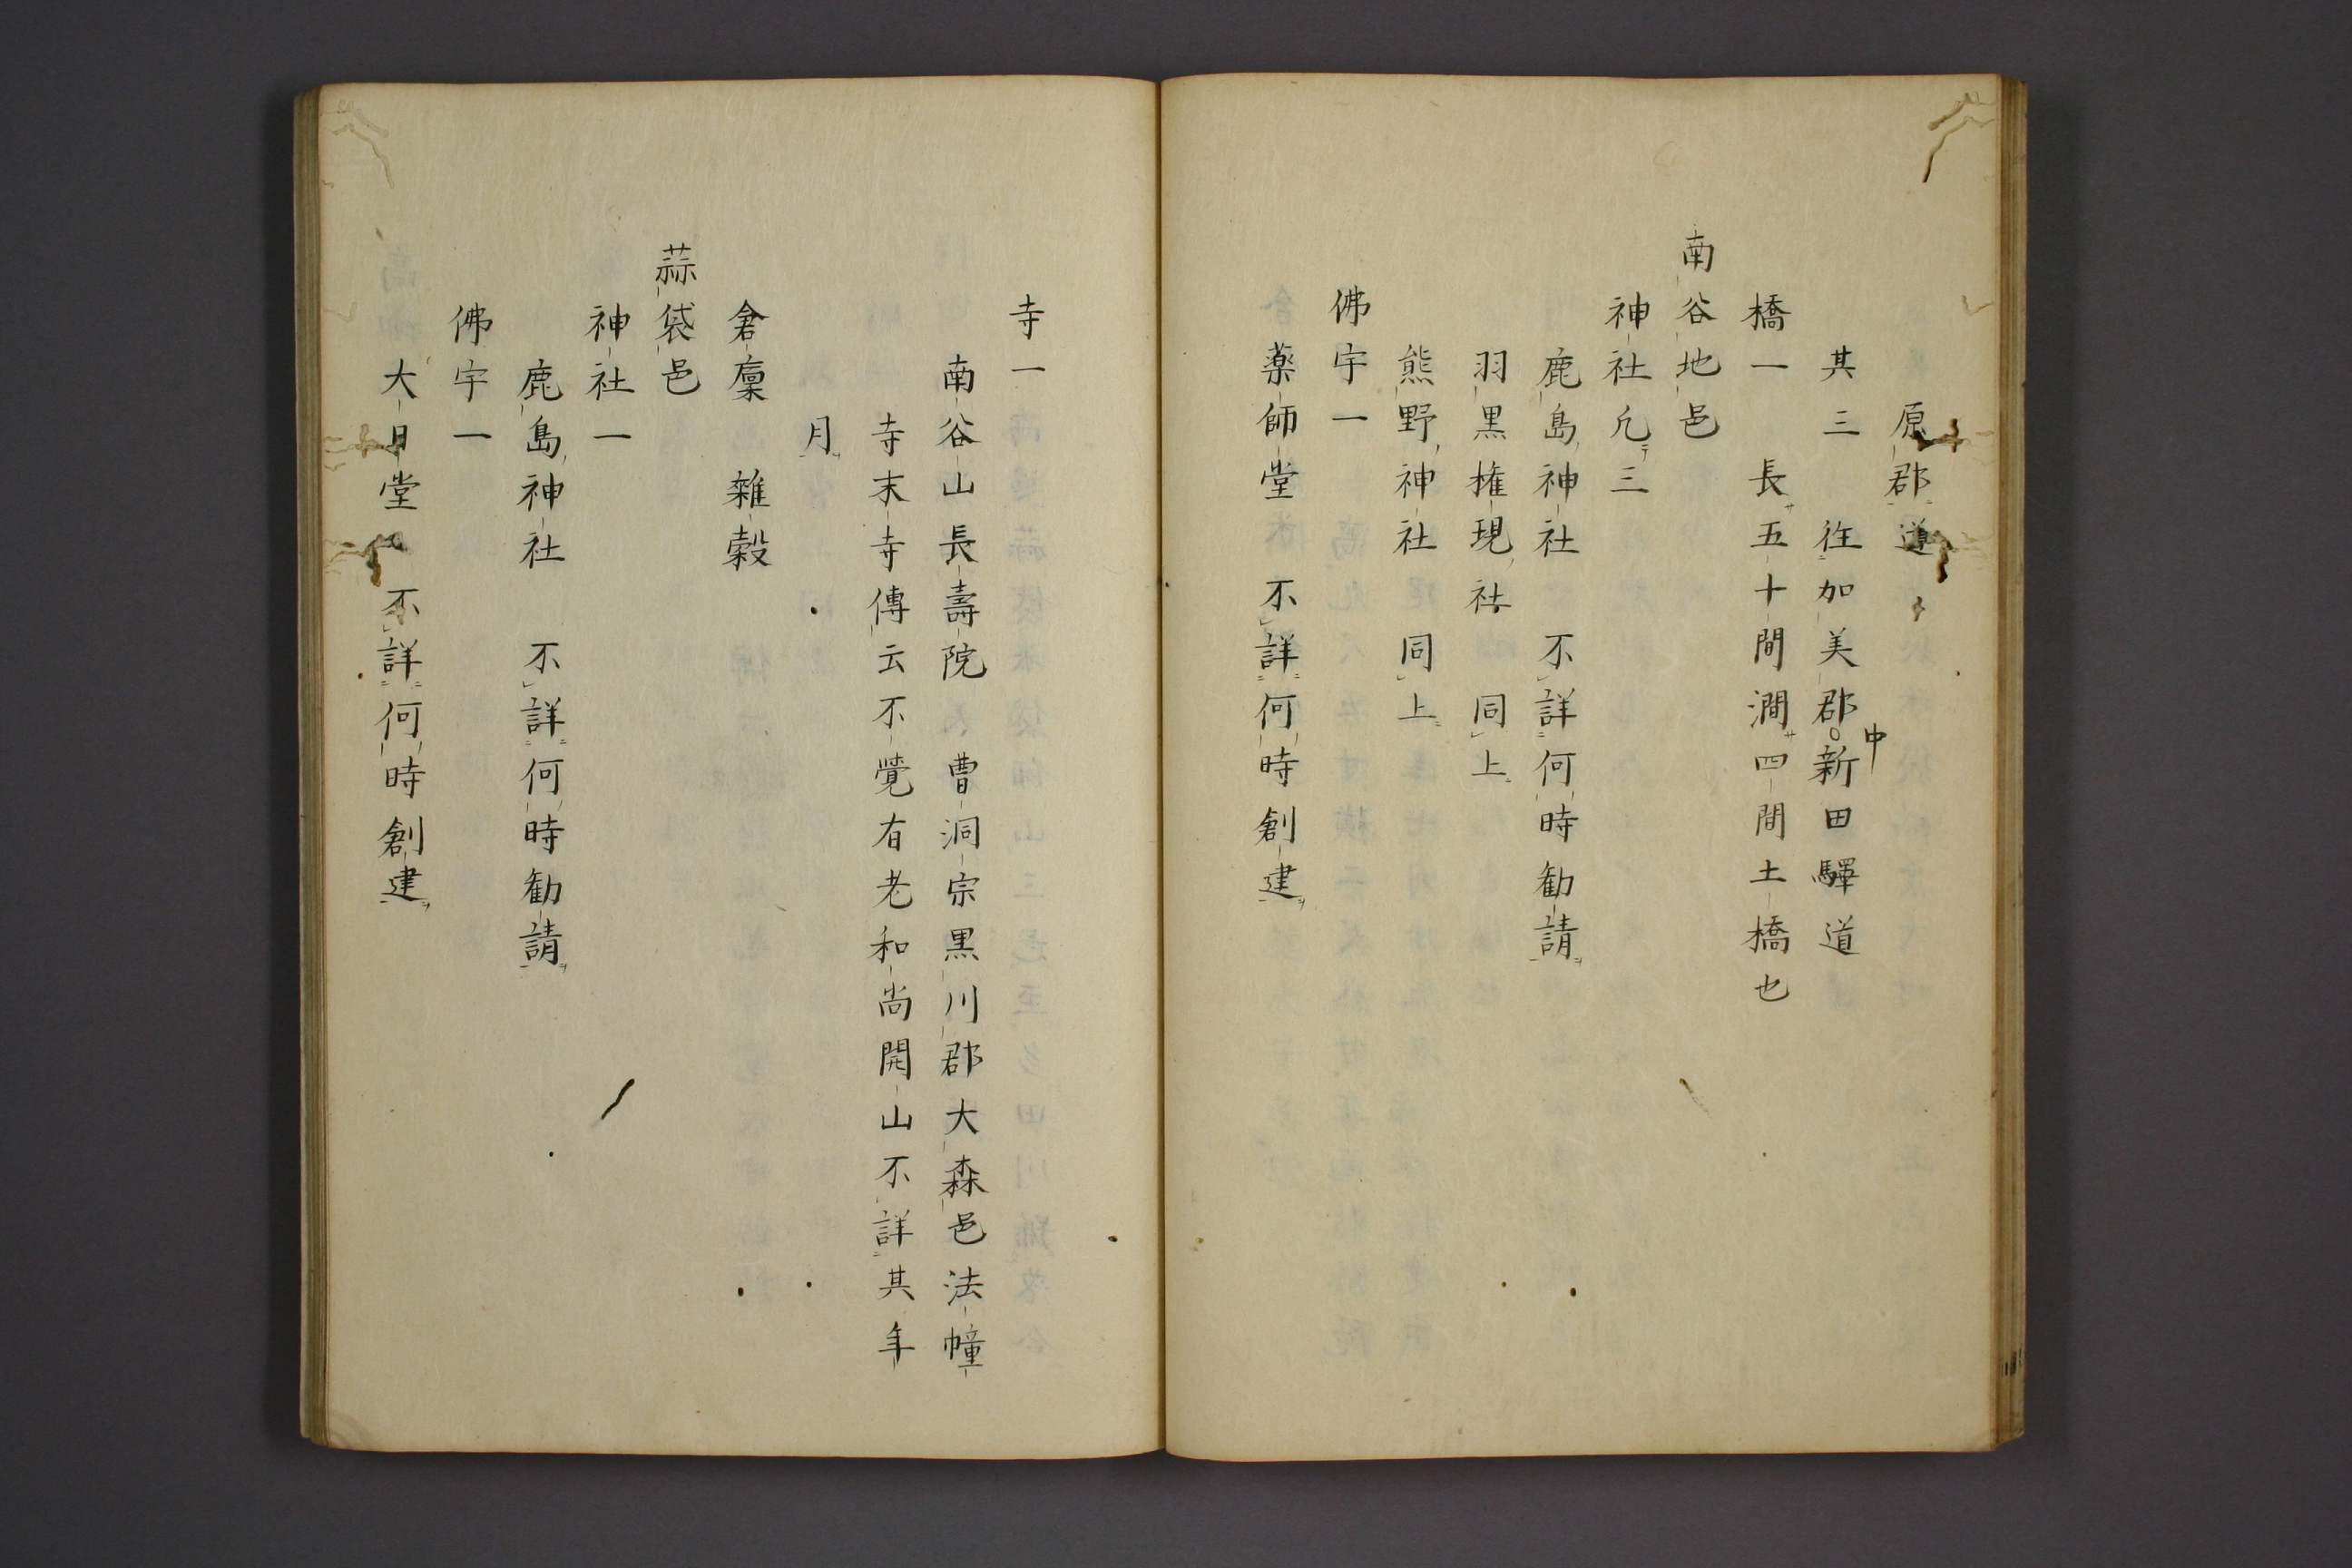 原郡道
其三　徃加美郡中新田驛道
橋一　長五十間濶四間土橋也
南谷地邑
神社凢三
鹿島神社　不詳何時勧請
羽黒権現社　同上
熊野神社　同上
佛宇一
薬師堂　不詳何時創建
寺一
南谷山長壽院　曹洞宗黒川郡大森邑法幢
寺末寺傳云不覺有老和尚開山不詳其年
月
倉廩　雜穀
蒜袋邑
神社一
鹿島神社　不詳何時勧請
佛宇一
大日堂　不詳何時創建